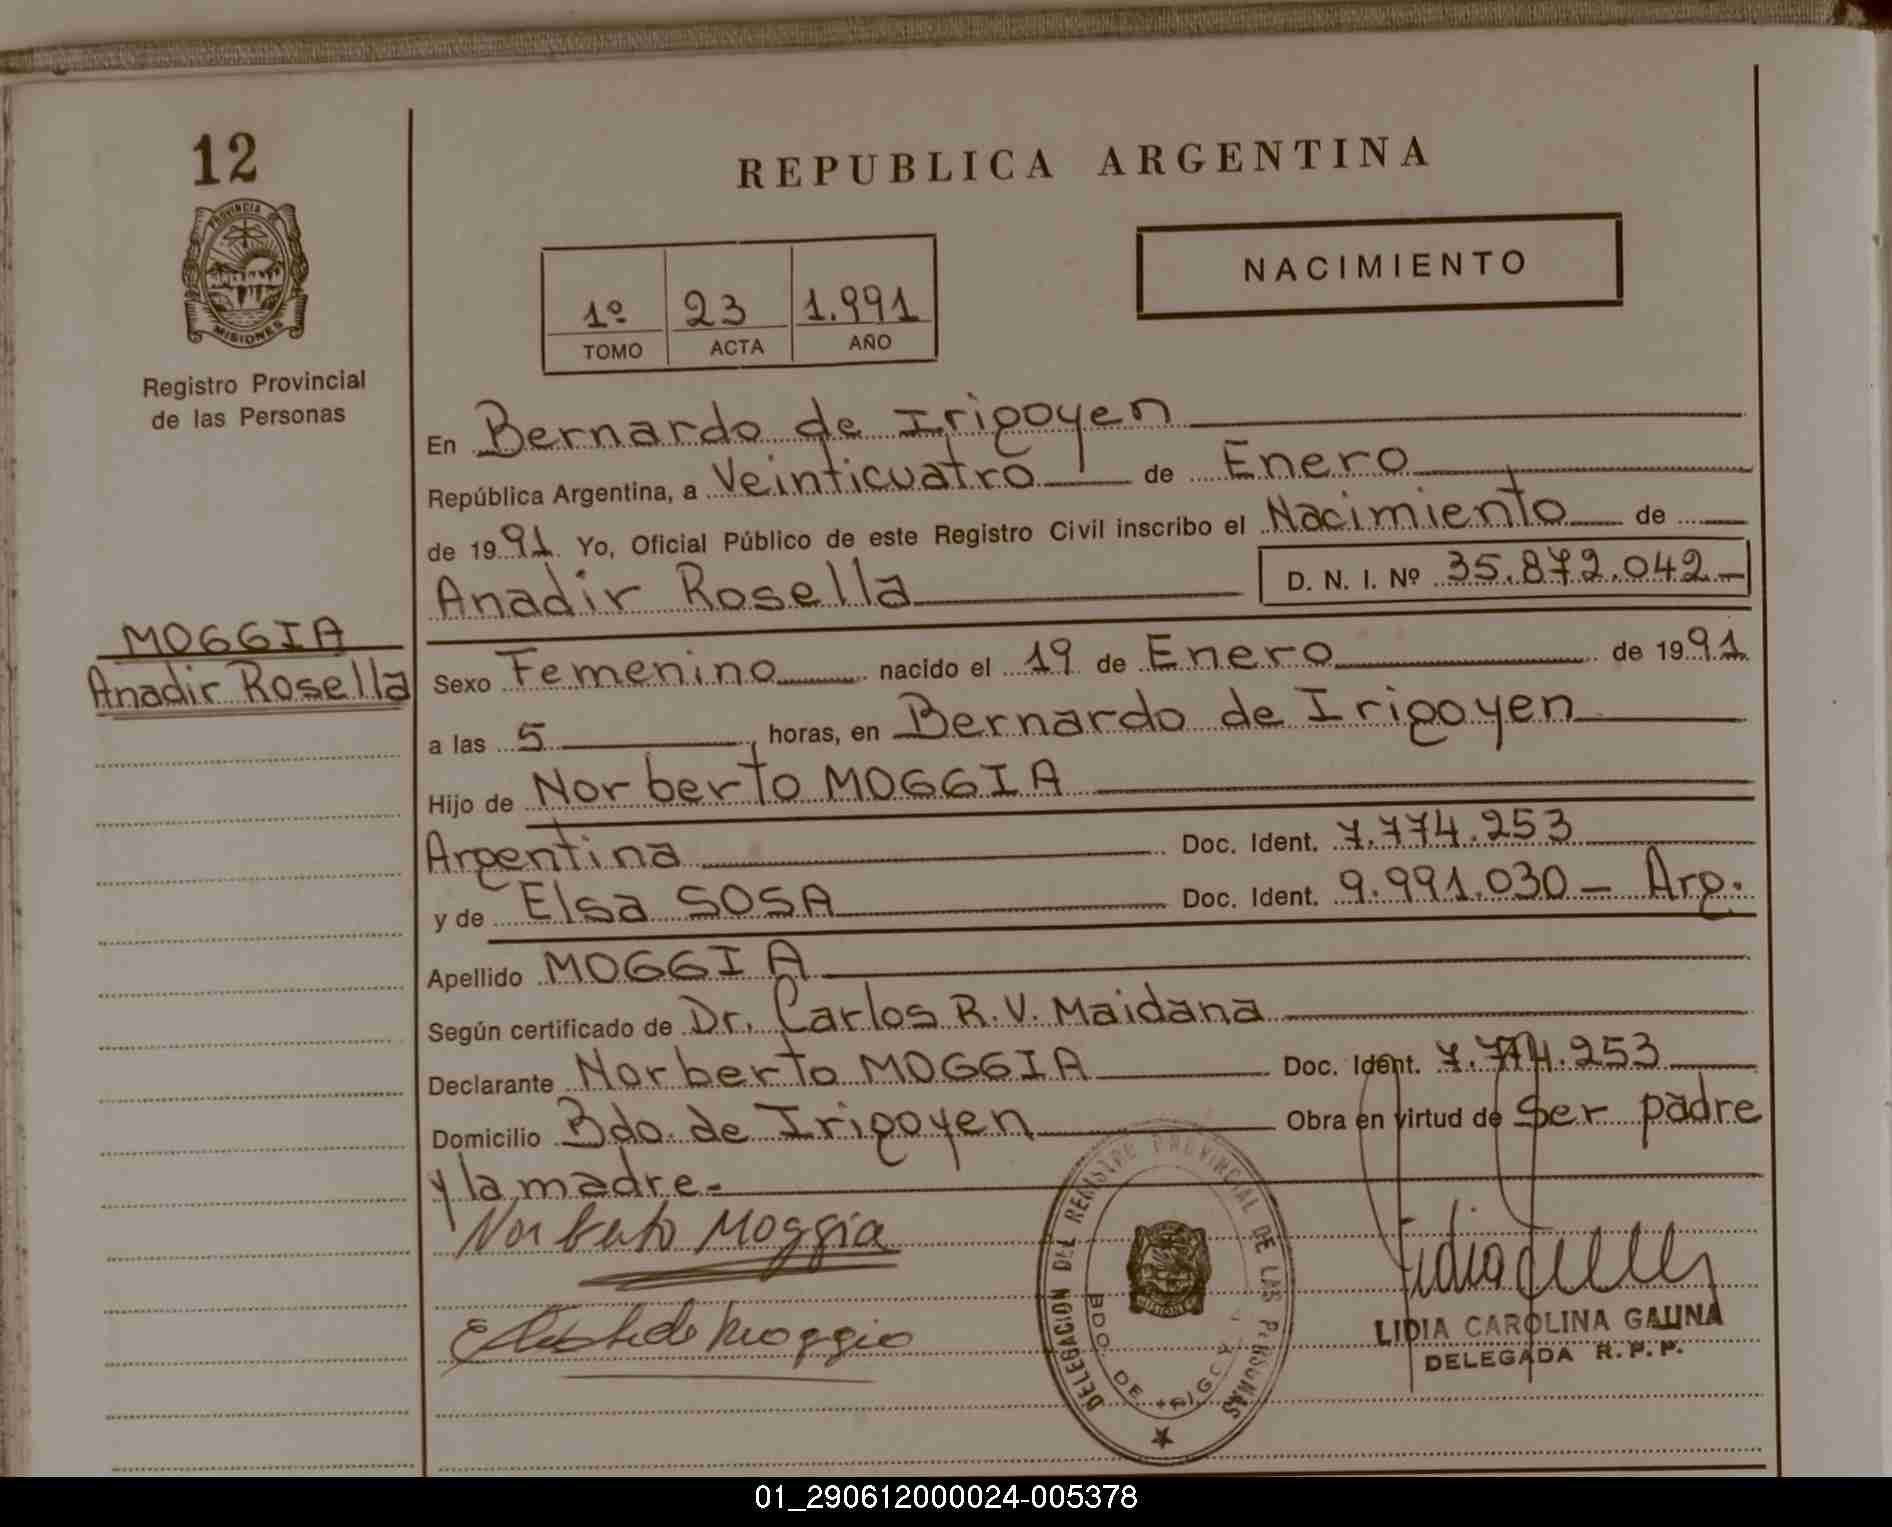 12
REPUBLICA ARGENTINA
PROVINCIA DE
MISIONES
NACIMIENTO
1º 23 1.991
TOMO ACTA AÑO
Registro Provincial
de las Personas
En Bernardo de Irigoyen
República Argentina, a Veinticuatro de Enero
de 1991 Yo, Oficial Público de este Registro Civil inscribo el Nacimiento de
Anadir Rosella D. N. I. Nº 35.872.042-
MOGGIA
Anadir Rosella
Sexo Femenino nacido el 19 de Enero de 1991
a las 5 , horas, en Bernardo de Irigoyen
Hijo de Norberto MOGGIA
Argentina Doc. Ident. 7.774.253
y de Elsa SOSA Doc. Ident. 9.991.030 - Arg.
Apellido MOGGIA
Según certificado de Dr. Carlos R.V. Maidana
Declarante Norberto MOGGIA Doc. Ident. 7.774.253
Domicilio Bdo. de Irigoyen Obra en virtud de Ser padre
y la madre.-
Norberto Moggia
DELEGACION DEL REGISTRO PROVINCIAL DE LAS PERSONAS
BDO. DE
MISIONES
Lidia
de Moggia
LIDIA CAROLINA GAUNA
DELEGADA R.P.P.
01_290612000024-005378